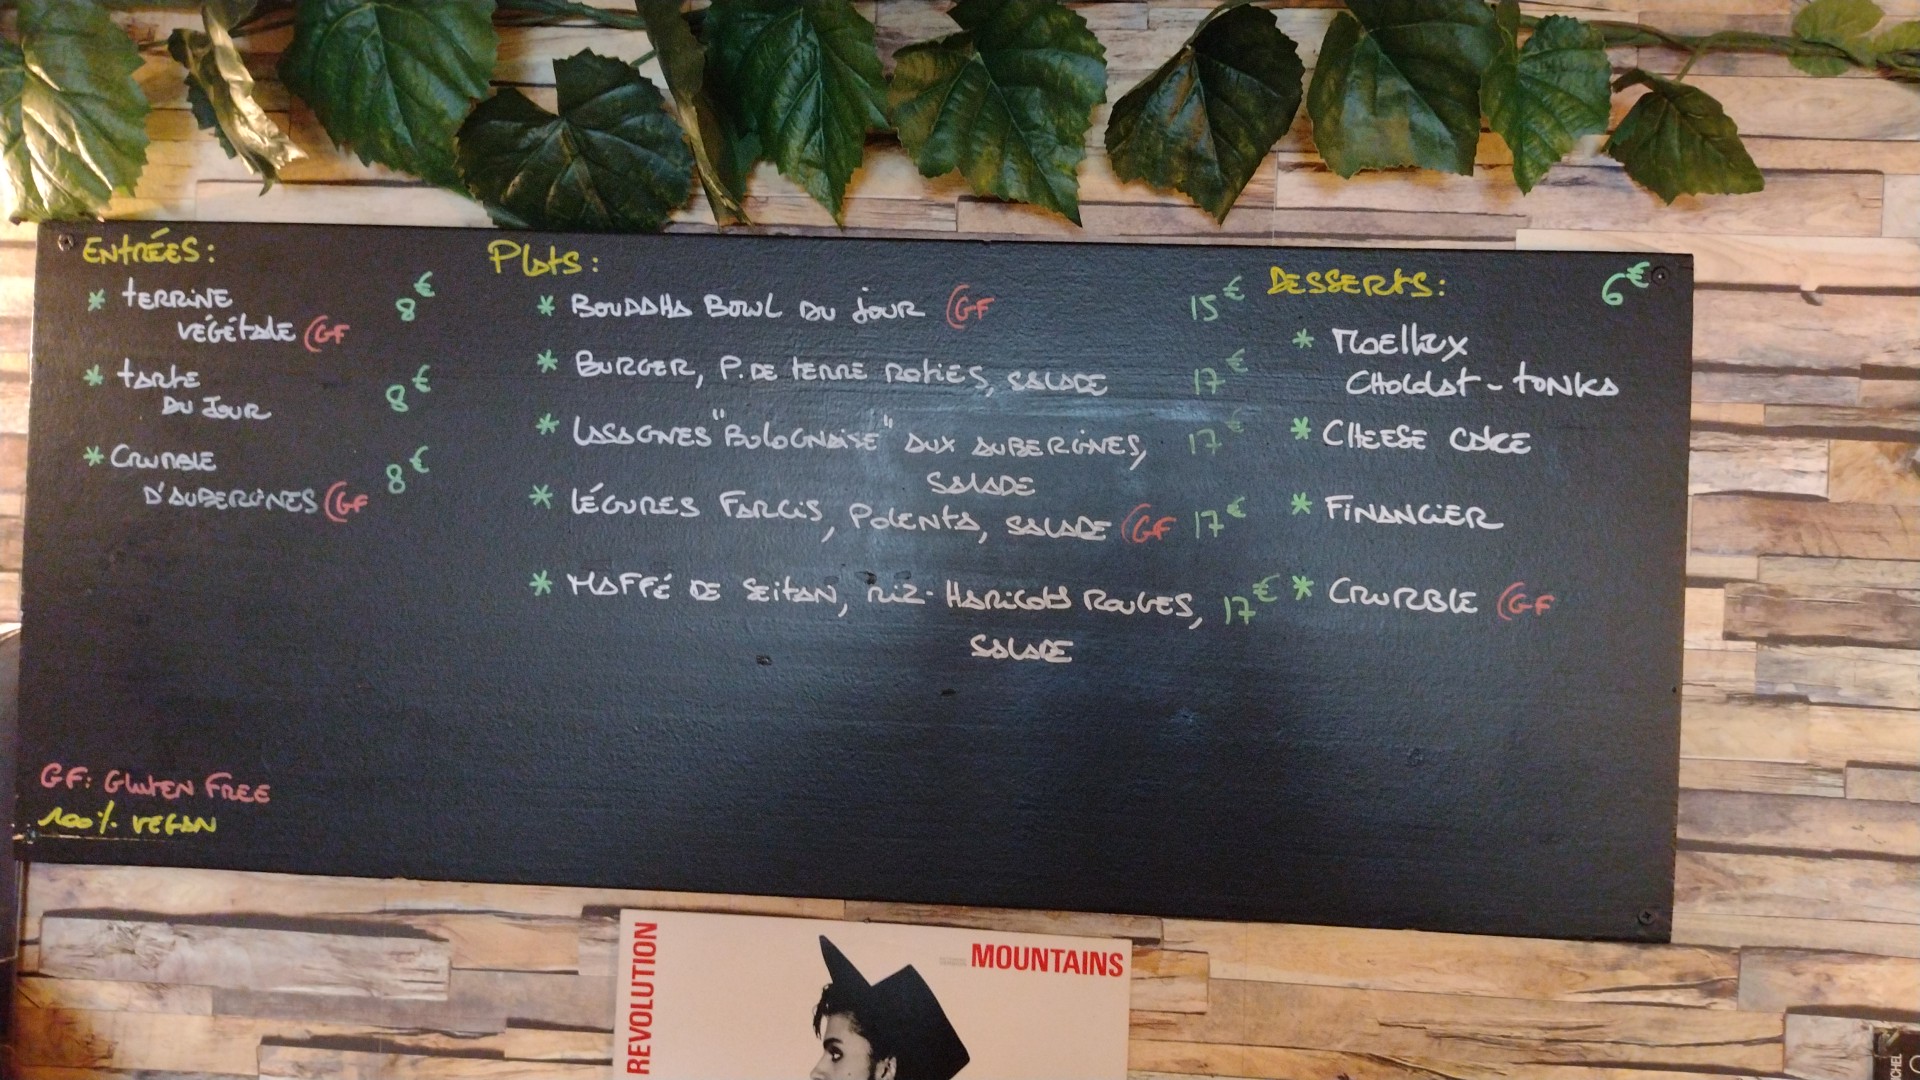 ENTRÉES :
* TERRINE
VÉGÉTALE (GF
8€
* TARTE
DU JOUR
8€
* CRUMBLE
D'AUBERGINES (GF
8€
GF: GLUTEN FREE
100% VEGAN
PLATS :
* BOUDDHA BOWL DU JOUR (GF 15€
* BURGER, P. DE TERRE ROTIES, SALADE 17€
* LASAGNES "BOLOGNAISE" AUX AUBERGINES, 17€
SALADE
* LÉGUMES FARCIS, POLENTA, SALADE (GF 17€
* MAFFÉ DE SEITAN, RIZ - HARICOTS ROUGES, 17€
SALADE
DESSERTS : 6€
* MOELLEUX
CHOCOLAT - TONKA
* CHEESE CAKE
* FINANCIER
* CRUMBLE (GF
REVOLUTION
MOUNTAINS